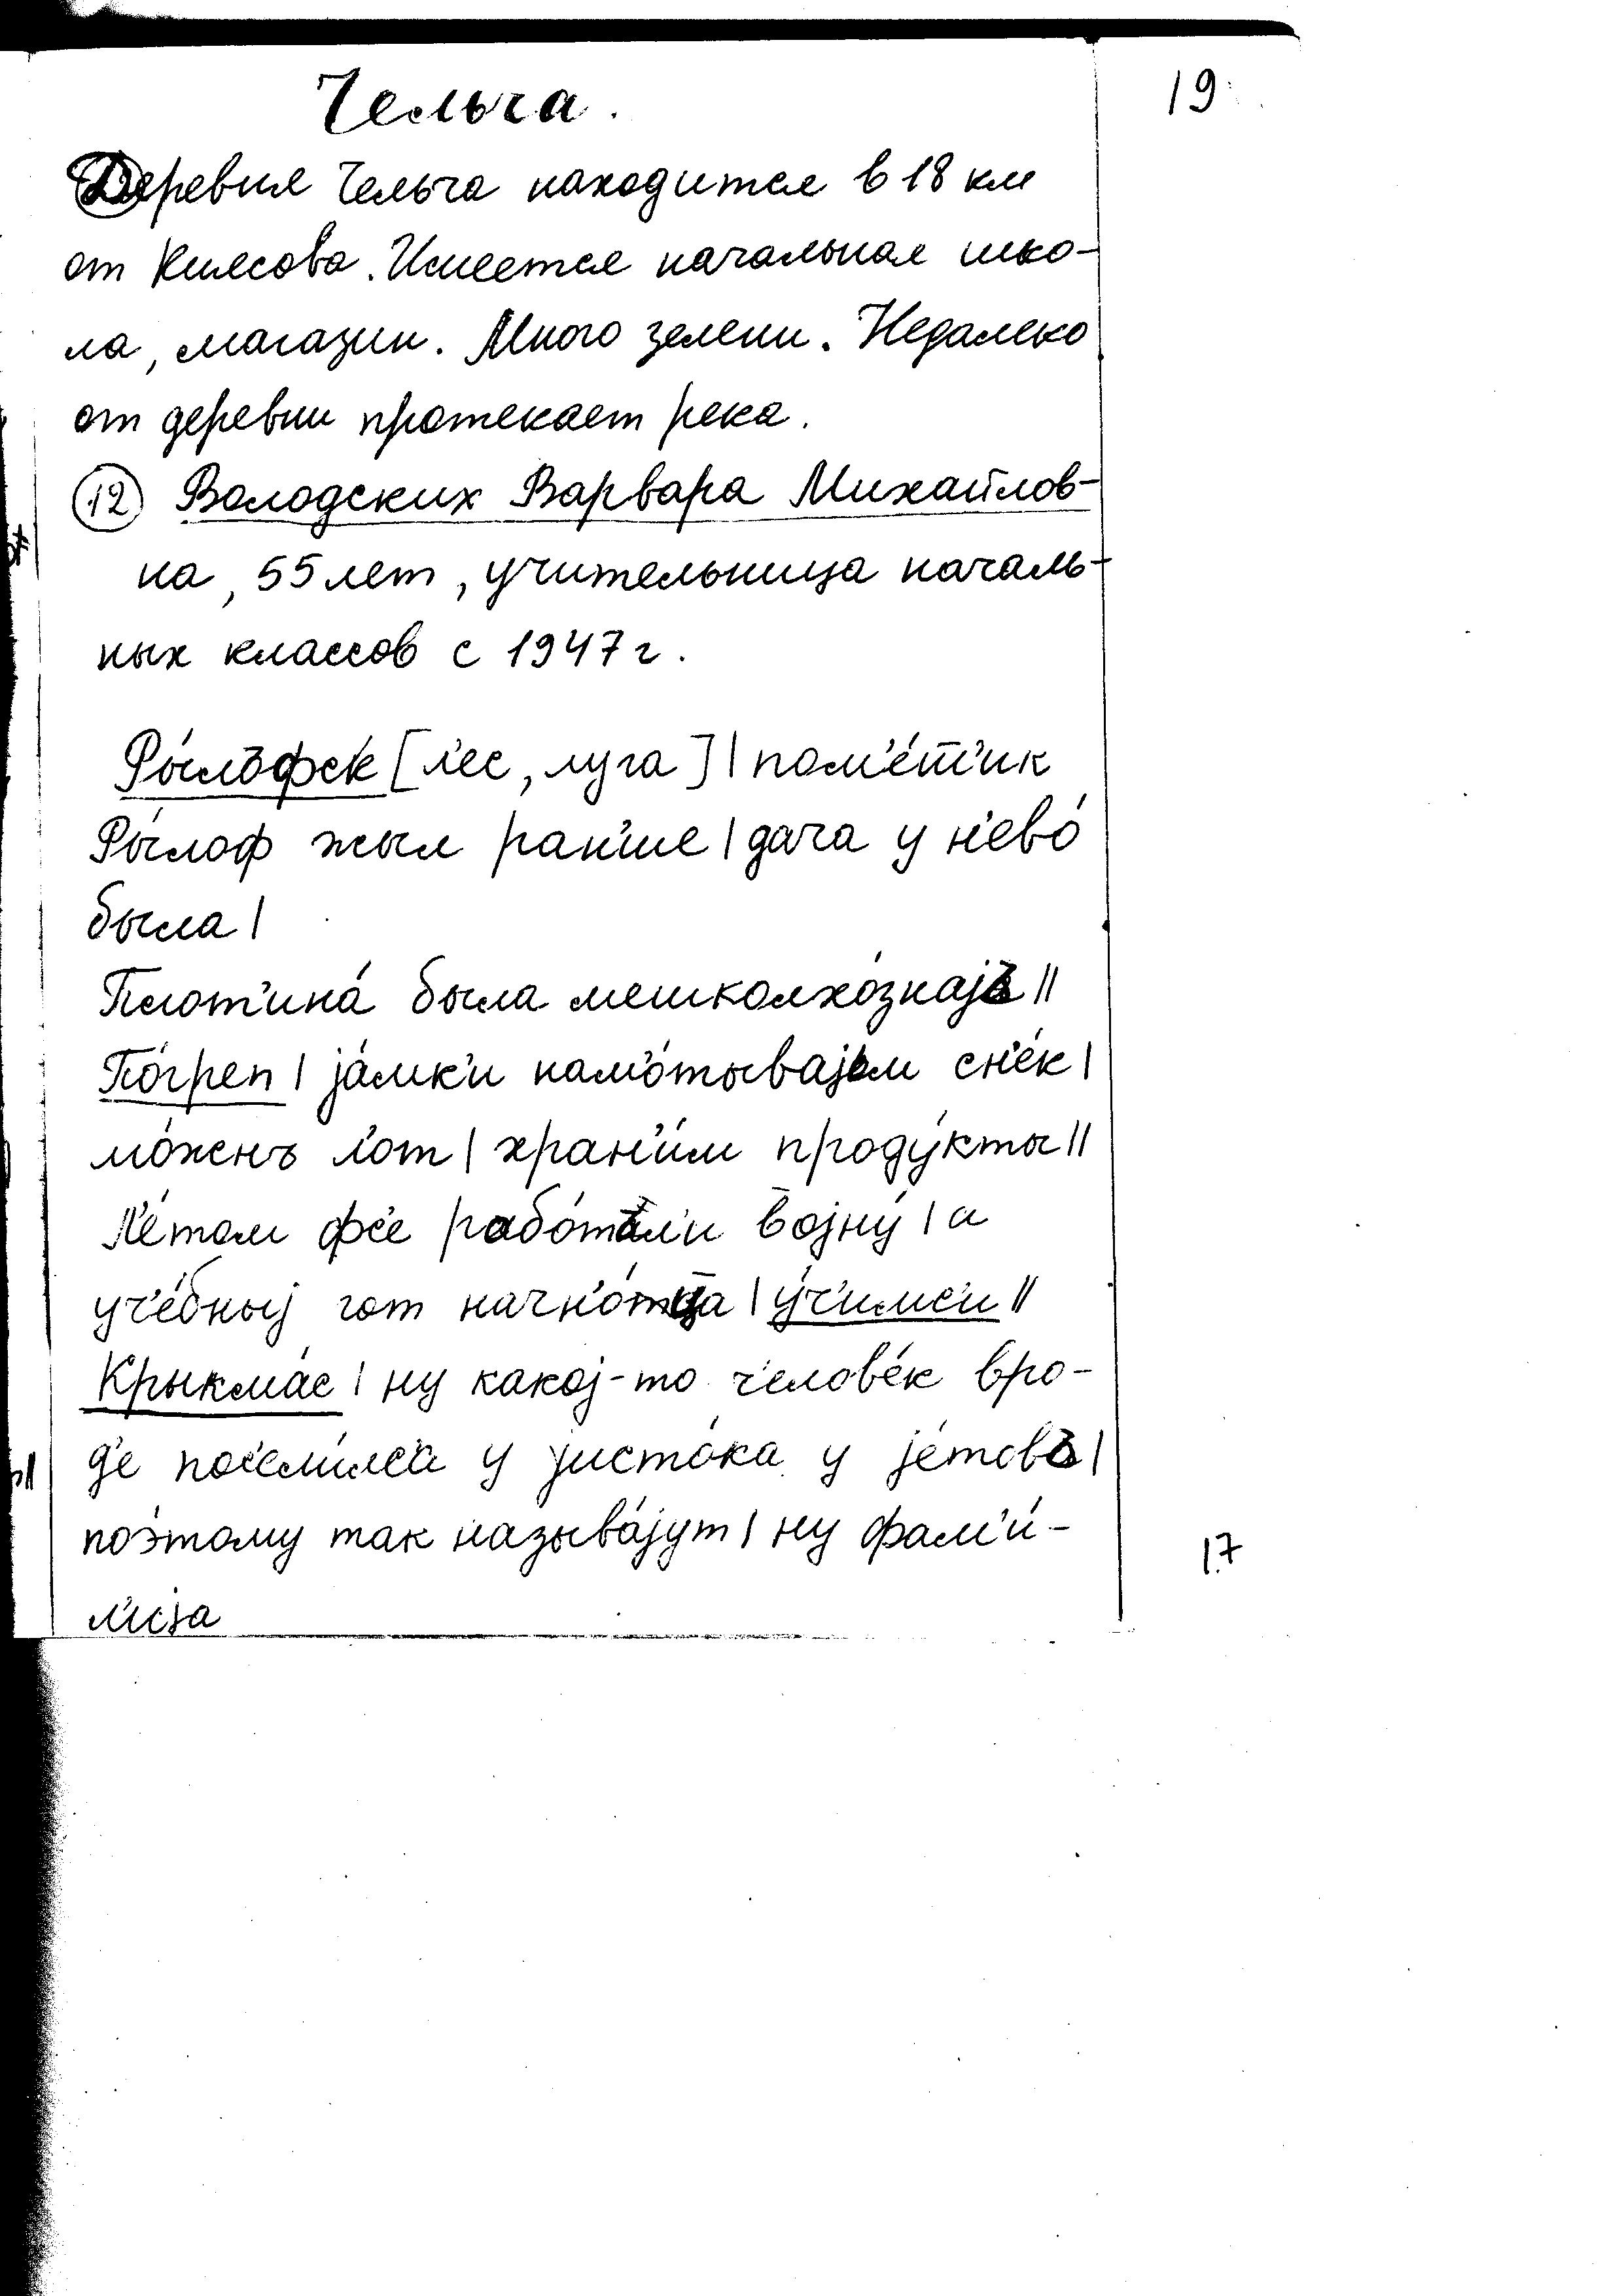 Чельча.
19
Деревня Чельча находится в 18 км
от Киясова. Имеется начальная шко-
ла, магазин. Много зелени. Недалеко
от деревни протекает река.
12 Володских Варвара Михайлов-
на, 55 лет, учительница началь-
ных классов с 1947 г.
Ры́лофск [л'ес, луга] | пом'е́т̅'ик
Ры́лоф жыл ран'ше | дача у н'ево́
была |
Плот'ина́ была мешколхо́знаjъ ||
По́греп | jа́мк'и нам'о́тываjьм сн'ек |
мо́женъ л'от | хран'и́м проду́кты ||
Л'е́том фс'е рабо́тъл'и војну́ | а
уч'е́бныј гот начн'о́тца | у́ч'имс'и ||
Крыкма́с | ну какој-то ч'елов'е́к вро-
д'е пос'ели́лс'а у jисто́ка у jе́товъ |
поэ́тому так называ́јут | ну фам'и́-
л'иjа
17